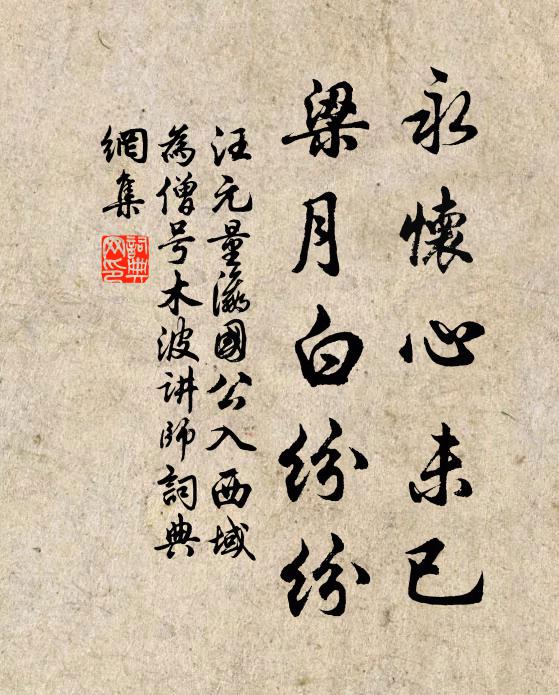 永懷心未已
梁月白紛紛
汪元量瀛國公入西域
為僧号木波讲師詞典
網集
詞典网印